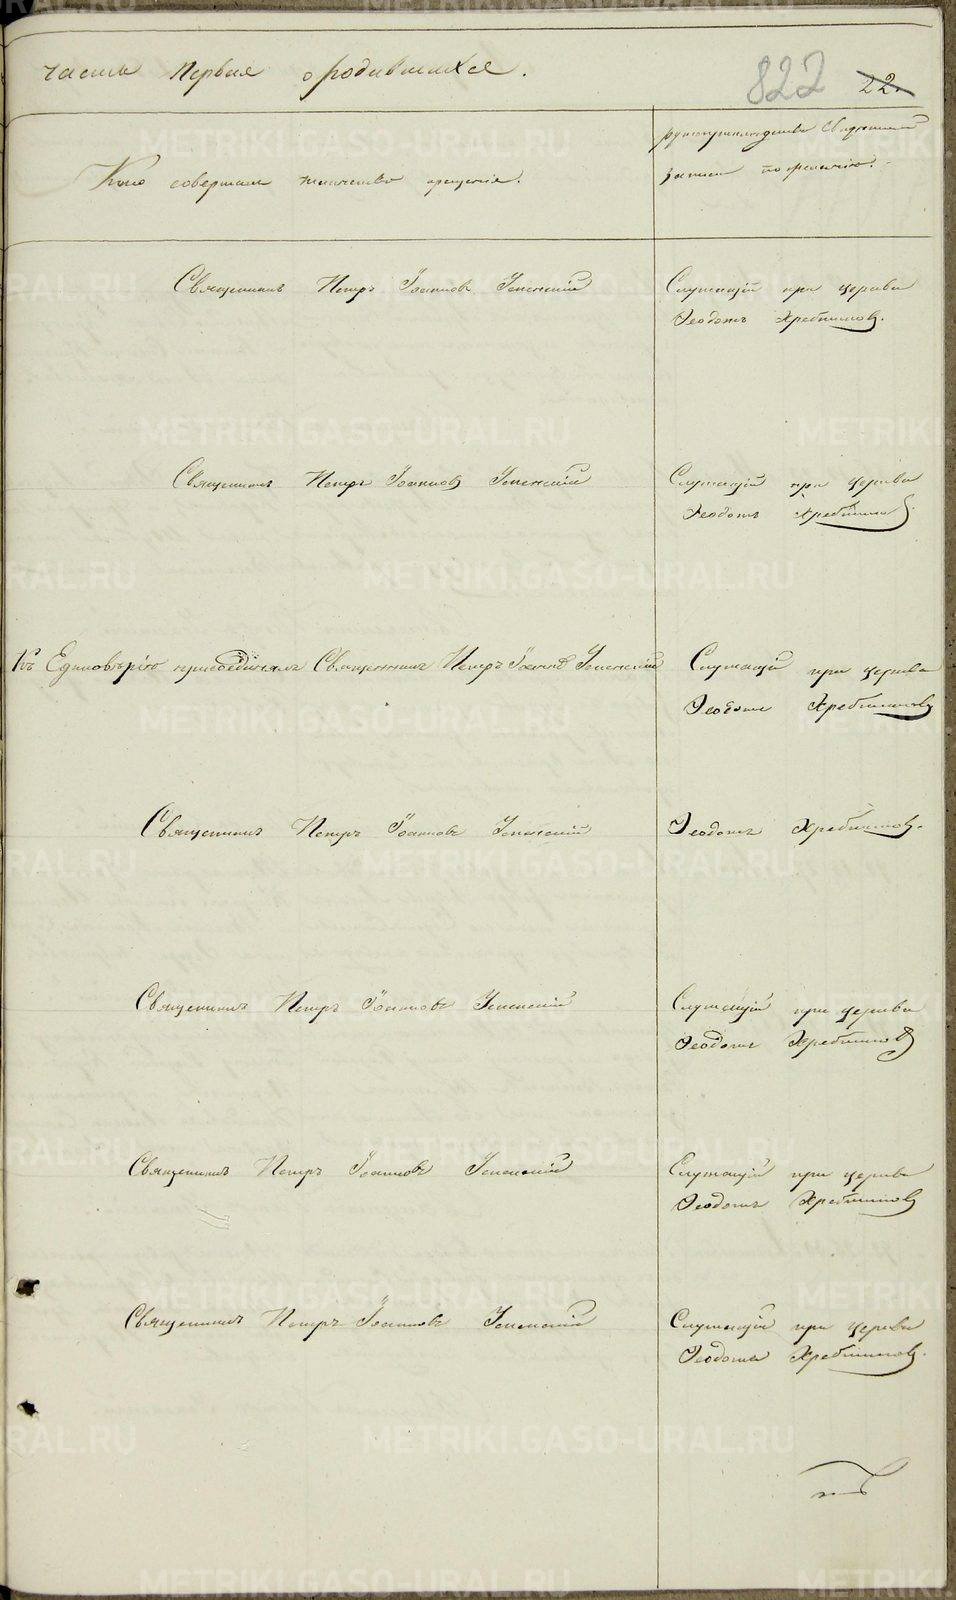 часть первая о родившихся.
822 22.
Кто совершал таинство крещения.
рукоприкладство свидетелей
записи по желанию.
Священникъ Петръ Іоанновъ Успенскій
Служащій при церкви
Феодотъ Хребтиковъ.
Священникъ Петръ Іоанновъ Успенскій
Служащій при церкви
Феодотъ Хребтиковъ.
Къ Единовѣрію присоединялъ Священникъ Петръ Іоанновъ Успенскій
Служащій при церкви
Феодотъ Хребтиковъ
Священникъ Петръ Іоанновъ Успенскій
Феодотъ Хребтиковъ.
Священникъ Петръ Іоанновъ Успенскій
Служащій при церкви
Феодотъ Хребтиковъ
Священникъ Петръ Іоанновъ Успенскій
Служащій при церкви
Феодотъ Хребтиковъ
Священникъ Петръ Іоанновъ Успенскій
Служащій при церкви
Феодотъ Хребтиковъ.
METRIKI.GASO-URAL.RU